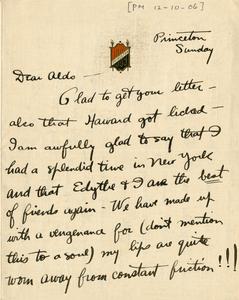 [PM 12-10-06]
Princeton
Sunday
Dear Aldo —
Glad to get your letter —
also that Haward got licked —
I am awfully glad to say that I
had a splendid time in New York
and that Edythe & I are the best
of friends again — We have made up
with a vengenance for (don't mention
this to a soul) my lips are quite
worn away from constant friction!!!